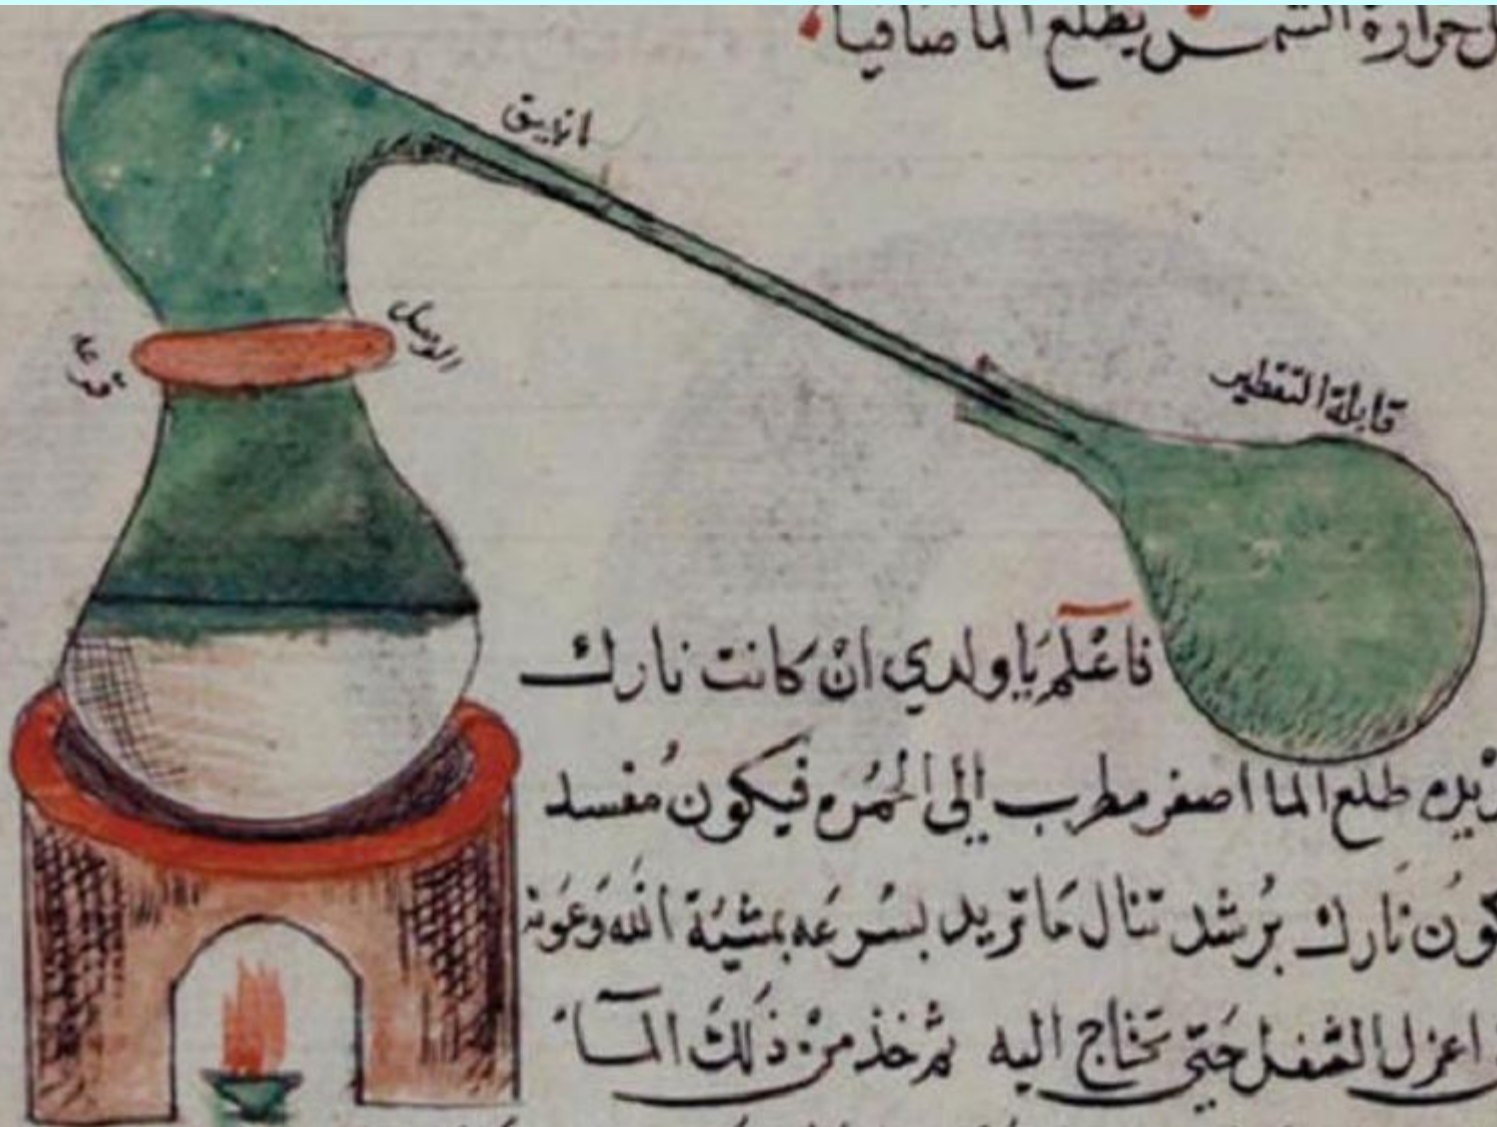 حرارة الشمس يطلع الما صافيا
انبيق
الوصل
قرعه
قابلة التقطير
فاعْلم يَا ولدي انْ كانت نارك
طلع الما اصفر مطرب الي الحُمُره فيكون مُفسد
نَارك بُرشد تنال مَا تريد بسُرعَه بمشيّة الله وَعَونه
اعزل الثفل حَتي تحتاج اليه ثم خذ من ذَلك المآء